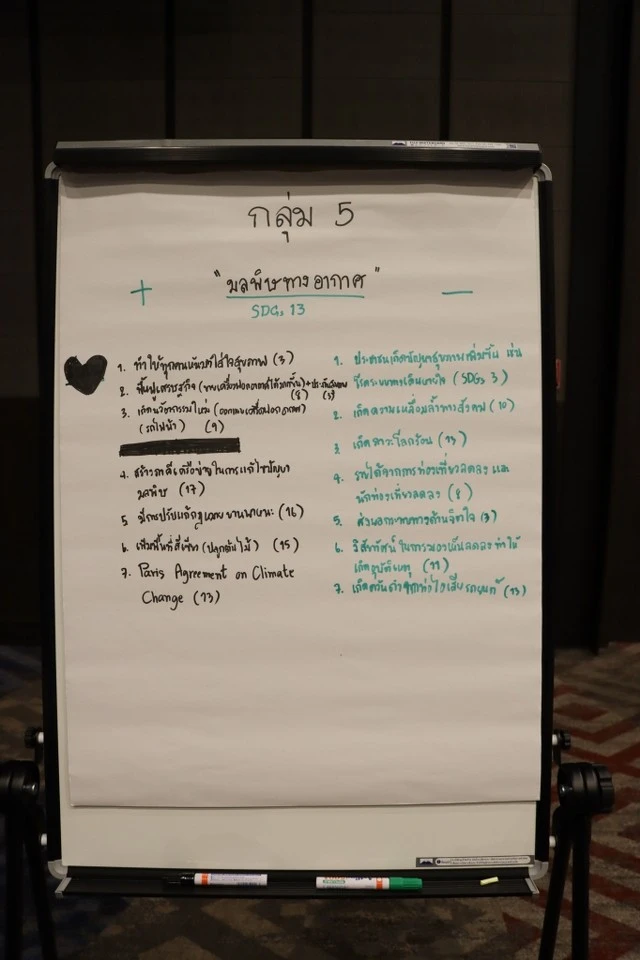 กลุ่ม 5
"มลพิษทางอากาศ"
SDGs 13
+
1. ทำให้ทุกคนหันมาใส่ใจสุขภาพ (3)
2. ฟื้นฟูเศรษฐกิจ (ขายเครื่องฟอกอากาศได้มากขึ้น) +
(8) (3)
3. เกิดนวัตกรรมใหม่ (ออกแบบเครื่องฟอกอากาศ)
(รถไฟฟ้า) (9)
4. สร้างภาคีเครือข่ายในการแก้ไขปัญหา
มลพิษ (17)
5 มีการปรับแก้กฎหมาย ยานพาหนะ (16)
6. เพิ่มพื้นที่สีเขียว (ปลูกต้นไม้) (15)
7. Paris Agreement on Climate
Change (13)
—
1. ประชาชนเกิดปัญหาสุขภาพเพิ่มขึ้น เช่น
โรคระบบทางเดินหายใจ (SDGs 3)
2. เกิดความเหลื่อมล้ำทางสังคม (10)
3. เกิดภาวะโลกร้อน (13)
4. รายได้จากการท่องเที่ยวลดลง และ
นักท่องเที่ยวลดลง (8)
5. ส่งผลกระทบทางด้านจิตใจ (3)
6. วิสัยทัศน์ ในการมองเห็นลดลง ทำให้
เกิดอุบัติเหตุ (11)
7. เกิดควันดำจากท่อไอเสียรถยนต์ (13)